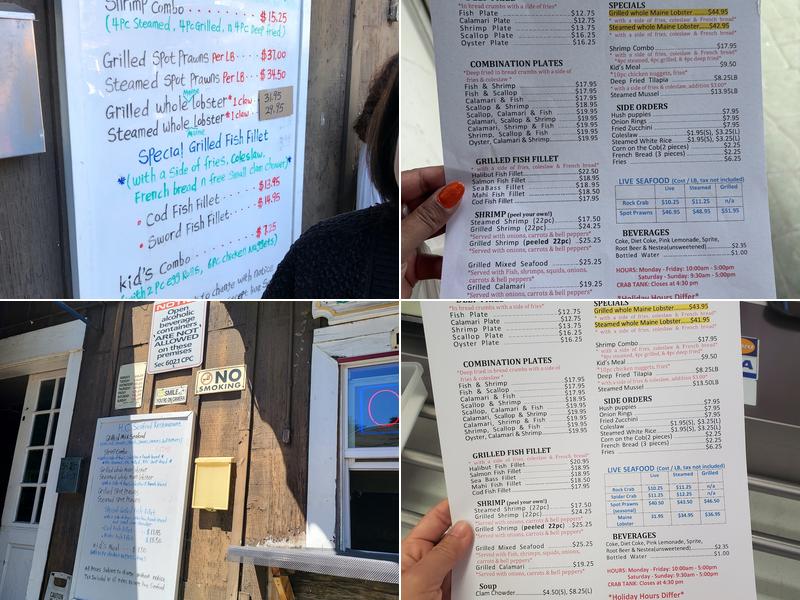 Shrimp Combo $15.25
(4pc Steamed, 4pc Grilled, n 4pc Deep fried)
Grilled Spot Prawns Per LB $37.00
Steamed Spot Prawns Per LB $34.50
Maine
Grilled whole Lobster *1 claw 31.95
Steamed whole Lobster *1 claw 29.95
Maine
Special Grilled Fish Fillet
*(with a side of fries, coleslaw,
French bread n free Small clam chowder)*
• Cod Fish Fillet $13.95
• Sword Fish Fillet $14.95
Kid's Combo $7.25
(with 2 pc egg Rolls, 6pc chicken nuggets)
to change with notice
*In bread crumbs with a side of fries*
Fish Plate $12.75
Calamari Plate $12.75
Shrimp Plate $13.75
Scallop Plate $16.25
Oyster Plate $16.25
COMBINATION PLATES
*Deep fried in bread crumbs with a side of
fries & coleslaw*
Fish & Shrimp $17.95
Fish & Scallop $17.95
Calamari & Fish $17.95
Calamari & Shrimp $18.95
Scallop, Calamari & Fish $19.95
Calamari, Shrimp & Fish $19.95
Shrimp, Scallop & Fish $19.95
Oyster, Calamari & Shrimp $19.95
GRILLED FISH FILLET
* with a side of fries, coleslaw & French bread*
Halibut Fish Fillet $22.50
Salmon Fish Fillet $18.95
SeaBass Fillet $18.95
Mahi Fish Fillet $18.50
Cod Fish Fillet $18.95
SHRIMP (peel your own!)
Steamed Shrimp (22pc) $17.50
Grilled Shrimp (22pc) $24.25
*Served with onions, carrots & bell peppers*
Grilled Shrimp (peeled 22pc) $25.25
Grilled Mixed Seafood $25.25
*Served with Fish, shrimps, squids, onions,
carrots & bell peppers*
Grilled Calamari $19.25
*Served with onions, carrots & bell peppers*
SPECIALS
Grilled whole Maine Lobster $44.95
* with a side of fries, coleslaw & French bread*
Steamed whole Maine Lobster $42.95
Shrimp Combo $17.95
* with a side of fries, coleslaw & French bread*
*4pc steamed, 4pc grilled, & 4pc deep fried*
Kid's Meal $9.50
*10pc chicken nuggets, fries*
Deep Fried Tilapia $8.25LB
* with a side of fries & coleslaw, addition $3.00*
Steamed Mussel $13.95LB
SIDE ORDERS
Hush puppies $7.95
Onion Rings $7.95
Fried Zucchini $7.95
Coleslaw $1.95(S), $3.25(L)
Steamed White Rice $1.95(S), $3.25(L)
Corn on the Cob(2 pieces) $2.25
French Bread (3 pieces) $2.25
Fries $6.25
LIVE SEAFOOD (Cost / LB, tax not included)
Live Steamed Grilled
Rock Crab $10.25 $11.25 n/a
Spot Prawns $46.95 $48.95 $51.95
BEVERAGES
Coke, Diet Coke, Pink Lemonade, Sprite,
Root Beer & Nestea(unsweetened) $2.35
Bottled Water $1.00
HOURS: Monday - Friday: 10:00am - 5:00pm
Saturday - Sunday: 9:30am - 5:00pm
CRAB TANK: Closes at 4:30 pm
*Holiday Hours Differ*
NOTICE
Open
alcoholic
beverage
containers
ARE NOT
ALLOWED
on these
premises
Sec 6021 CPC
SMILE
YOU'RE ON CAMERA
NO
SMOKING
H.C Seafood Restaurant
Grilled Mixed Seafood
Shrimp Combo
Kid's Meal
All Prices Subject to change without notice
CAUTION
*In bread crumbs with a side of fries*
Fish Plate $12.75
Calamari Plate $12.75
Shrimp Plate $13.75
Scallop Plate $16.25
Oyster Plate $16.25
COMBINATION PLATES
*Deep fried in bread crumbs with a side of
fries & coleslaw*
Fish & Shrimp $17.95
Fish & Scallop $17.95
Calamari & Fish $17.95
Calamari & Shrimp $18.95
Scallop, Calamari & Fish $19.95
Calamari, Shrimp & Fish $19.95
Shrimp, Scallop & Fish $19.95
Oyster, Calamari & Shrimp $19.95
GRILLED FISH FILLET
* with a side of fries, coleslaw & French bread*
Halibut Fish Fillet $20.95
Salmon Fish Fillet $18.95
Sea Bass Fillet $18.95
Mahi Fish Fillet $18.50
Cod Fish Fillet $17.95
SHRIMP (peel your own!)
Steamed Shrimp (22pc) $17.50
Grilled Shrimp (22pc) $24.25
*Served with onions, carrots & bell peppers*
Grilled Shrimp (peeled 22pc) $25.25
*Served with onions, carrots & bell peppers*
Grilled Mixed Seafood $25.25
*Served with Fish, shrimps, squids, onions,
carrots & bell peppers*
Grilled Calamari $19.25
*Served with onions, carrots & bell peppers*
Soup
Clam Chowder $4.50(S), $8.25(L)
SPECIALS
Grilled whole Maine Lobster $43.95
* with a side of fries, coleslaw & French bread*
Steamed whole Maine Lobster $41.95
Shrimp Combo $17.95
* with a side of fries, coleslaw & French bread*
*4pc steamed, 4pc grilled, & 4pc deep fried*
Kid's Meal $9.50
*10pc chicken nuggets, fries*
Deep Fried Tilapia $8.25LB
* with a side of fries & coleslaw, addition $3.00*
Steamed Mussel $13.50LB
SIDE ORDERS
Hush puppies $7.95
Onion Rings $7.95
Fried Zucchini $7.95
Coleslaw $1.95(S), $3.25(L)
Steamed White Rice $1.95(S), $3.25(L)
Corn on the Cob(2 pieces) $2.25
French Bread (3 pieces) $2.25
Fries $6.25
LIVE SEAFOOD (Cost / LB, tax not included)
Live Steamed Grilled
Rock Crab $10.25 $11.25 n/a
Spider Crab $11.25 $12.25 n/a
Spot Prawns (seasonal) $40.50 $43.50 $46.50
Maine Lobster 31.95 $34.95 $36.95
BEVERAGES
Coke, Diet Coke, Pink Lemonade, Sprite,
Root Beer & Nestea(unsweetened) $2.35
Bottled Water $1.00
HOURS: Monday - Friday: 10:00am - 5:00pm
Saturday - Sunday: 9:30am - 5:00pm
CRAB TANK: Closes at 4:30 pm
*Holiday Hours Differ*